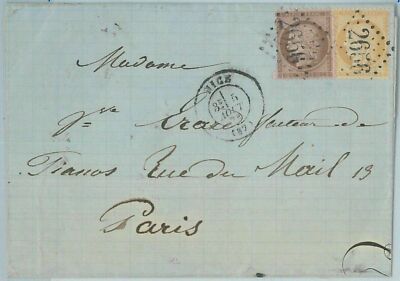 2656 2656
Madame
NICE
5
AOUT
(87)
Vve Erard facteur de
Pianos Rue du Mail 13
Paris